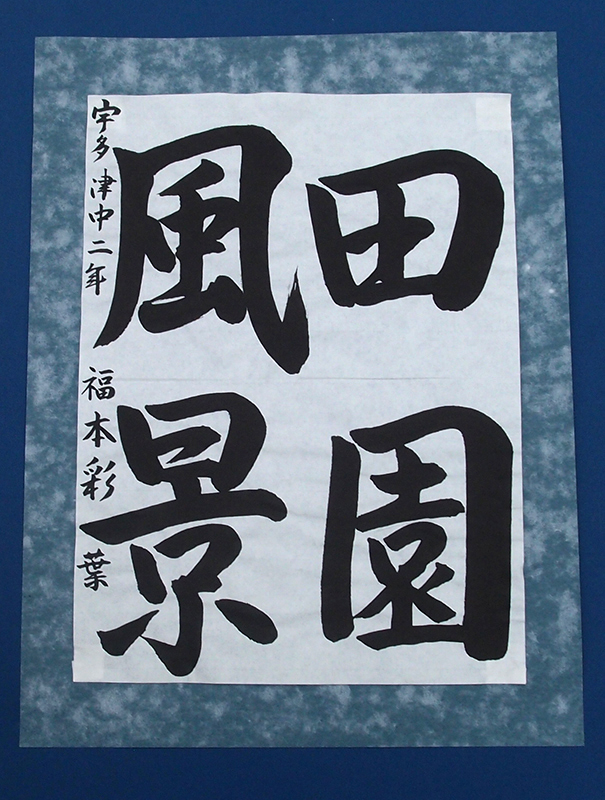 田園
風景
宇多津中二年 福本彩葉